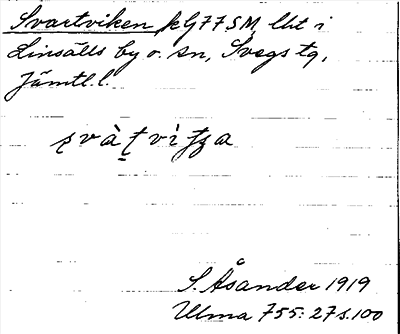 Svartviken kG77SM, lht i
Linsälls by o. sn, Svegs tg,
Jämtl. l.
svàt̯vìtza
S. Åsander 1919
Ulma 755:27 s.100